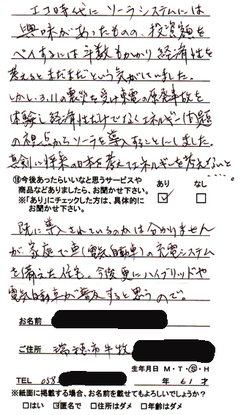 エコ時代にソーラシステムには
興味があったものの、投資額を
ペイするには年数もかかり経済性を
考えるとまだまだという気がしていました。
しかし、3.11の震災を受け東電の原発事故を
体験し経済性だけでなくエネルギー問題
の視点からソーラを導入することにしました。
真剣に将来の日本を考えてエネルギーを考えないと
⑱今後あったらいいなと思うサービスや
商品などありましたら、お聞かせ下さい。
※「あり」にチェックした方は、具体的に
お聞かせ下さい。
あり なし
既に導入されているのかは分かりません
が家庭で車(電気自動車)の充電システム
を備えた住宅。今後更にハイブリッドや
電気自動車が普及すると思うので。
お名前
ご住所 瑞穂市牛牧
生年月日 M・T・S・H
TEL 058 年 61才
※紙面に掲載する場合、お名前を載せてもよろしいでしょうか?
□はい ☑匿名で □住所はダメ □年齢はダメ